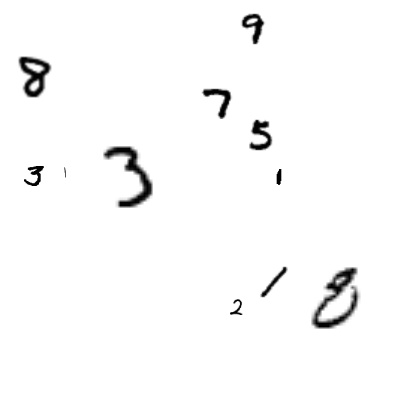 9
8
7
5
3 1 3 1
1
2 8